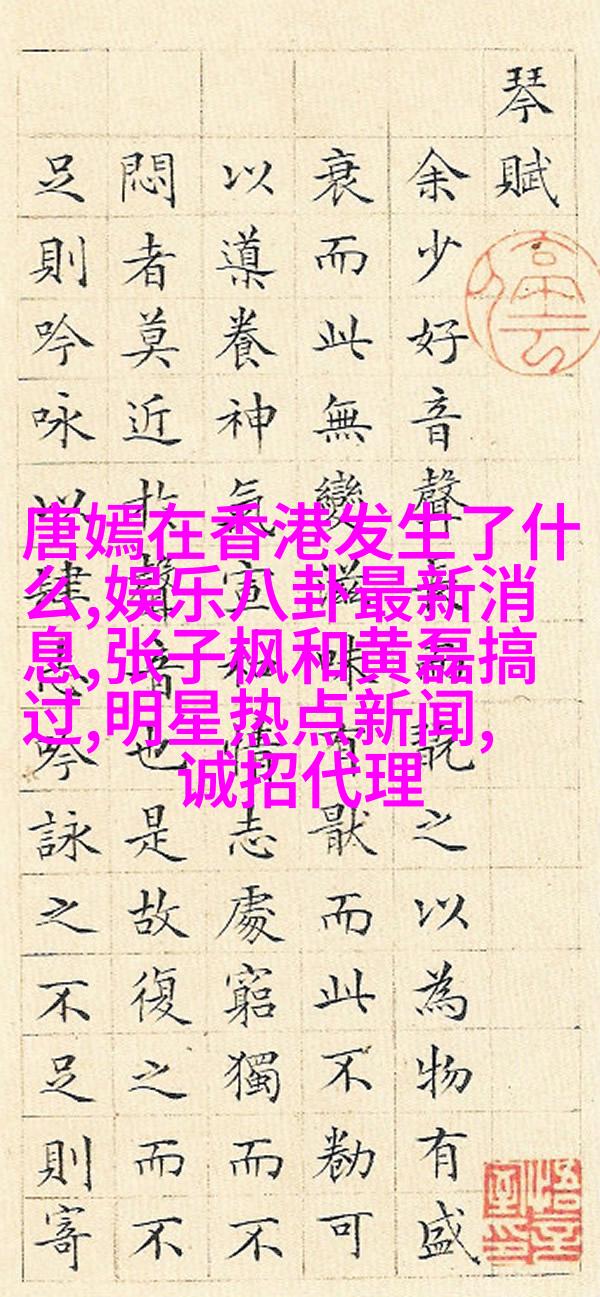 琴賦
余少好音聲翫之以為物有盛
衰而此無變滋味有猒而此不勌可
以導養神氣宣和情志處窮獨而不
悶者莫近於聲音也是故復之而不
足則吟咏以肆志吟詠之不足則寄
唐嫣在香港发生了什
么,娱乐八卦最新消
息,张子枫和黄磊搞
过,明星热点新闻,
诚招代理